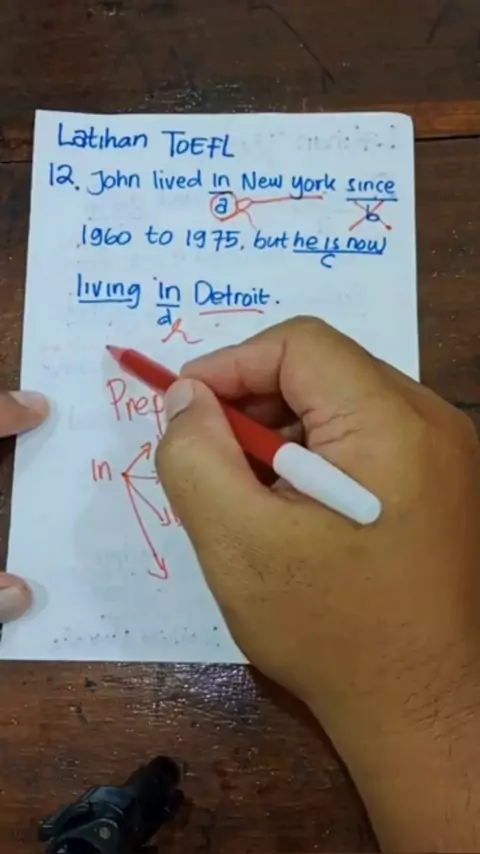 Latihan TOEFL
12. John lived in New york since
a b
1960 to 1975, but he is now
c
living in Detroit.
d
In